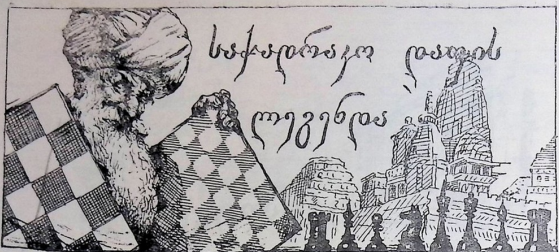 საჭადრაკო დაფის
ლეგენდა